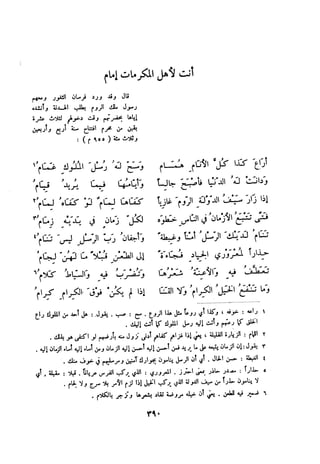 أنت لأهل المكرمات إمام
قال وقد ورد فرسان الثغور ومعهم
رسول ملك الروم يطلب الهدنة وأنشده
إياها بحضرتهم وقت دخولهم لثلاث عشرة
بقين من محرم افتتاح سنة أربع وأربعين
وثلاث مئة ( ٩٥٥ م ) :
أراعَ كذا كُلَّ الأنامِ هُمامُ وسَحَّ لهُ رُسْلَ المُلوكِ غَمامُ١
ودانَتْ لهُ الدّنْيا فأصْبَحَ جالِساً وأيّامُها فيما يُريدُ قِيامُ
إذا زارَ سَيْفُ الدّوْلَةِ الرّومَ غازِياً كَفاها لِمامٌ لوْ كَفاهُ لِمامُ٢
فَتًى تَتْبَعُ الأزْمانُ في النّاسِ خَطوَهُ لكُلّ زَمانٍ في يَدَيْهِ زِمامُ٣
تَنامُ لَدَيْكَ الرّسْلُ أمْناً وغِبطَةً وأجفانُ رَبّ الرّسْلِ ليسَ تَنامُ٤
حِذاراً لمُعْرَوْرِي الجِيادِ فُجاءَةً إلى الطّعْنِ قُبْلاً ما لهُنّ لِجامُ٥
تَعَطَّفُ فيهِ والأعِنّةُ شَعْرُها وتُضرَبُ فيهِ والسّياطُ كَلامُ٦
وما تَنْفَعُ الخَيْلُ الكِرامُ ولا القَنَا إذا لم يكُنْ فوْقَ الكِرامِ كِرامُ
١ راعه : خوفه ، وكذا أي روعاً مثل هذا الروع . سح : صب . يقول : هل أحد من الملوك راع
الخلق كما رعتهم وأتت إليه رسل الملوك كما أتت إليك .
٢ اللمام : الزيارة القليلة ، يعني إذا غزاهم كفاهم أدنى نزول منه بأرضهم لو اكتفى هو بذلك .
٣ يقول : إن الزمان يتبعه على ما يريد فمن أحسن إليه أحسن إليه الزمان ومن أساء إليه أساء الزمان إليه .
٤ الغبطة : حسن الحال . أي أن الرسل ينامون بجوارك آمنين ومرسلهم في خوف منك .
٥ حذاراً : مصدر حاذر بمعنى احترز . المعروري : الذي يركب الفرس عرياناً . قبلا : مقبلة . أي
لا ينامون حذراً من سيف الدولة الذي يركب الخيل إذا لزم الأمر بلا سرج ولا لجام .
٦ ضمير فيه للطعن . يعني أن خيله مروضة تنقاد بشعرها وتزجر بالكلام .
٣٩٠